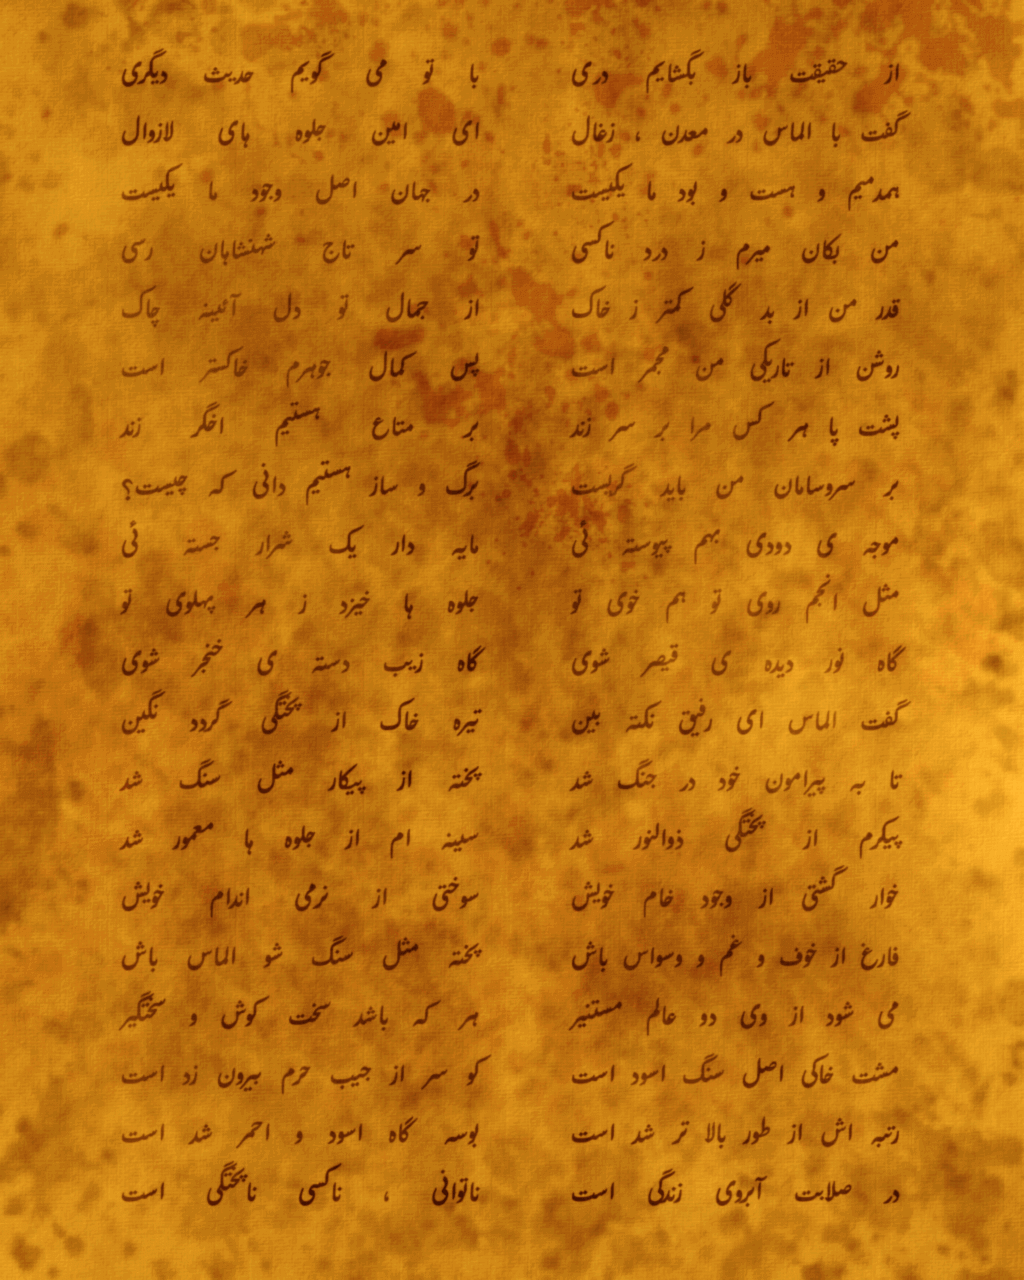 از حقیقت باز بگشایم دری با تو می گویم حدیث دیگری
گفت با الماس در معدن ، زغال ای امین جلوه های لازوال
همدمیم و هست و بود ما یکیست در جهان اصل وجود ما یکیست
من بکان میرم ز درد ناکسی تو سر تاج شهنشاهان رسی
قدر من از بد گلی کمتر ز خاک از جمال تو دل آئینه چاک
روشن از تاریکی من مجمر است پس کمال جوهرم خاکستر است
پشت پا هر کس مرا بر سر زند بر متاع هستیم اخگر زند
بر سروسامان من باید گریست برگ و ساز هستیم دانی که چیست؟
موجه ی دودی بهم پیوسته ئی مایه دار یک شرار جسته ئی
مثل انجم روی تو هم خوی تو جلوه ها خیزد ز هر پهلوی تو
گاه نور دیده ی قیصر شوی گاه زیب دسته ی خنجر شوی
گفت الماس ای رفیق نکته بین تیره خاک از پختگی گردد نگین
تا به پیرامون خود در جنگ شد پخته از پیکار مثل سنگ شد
پیکرم از پختگی ذوالنور شد سینه ام از جلوه ها معمور شد
خوار گشتی از وجود خام خویش سوختی از نرمی اندام خویش
فارغ از خوف و غم و وسواس باش پخته مثل سنگ شو الماس باش
می شود از وی دو عالم مستنیر هر که باشد سخت کوش و سختگیر
مشت خاکی اصل سنگ اسود است کو سر از جیب حرم بیرون زد است
رتبه اش از طور بالا تر شد است بوسه گاه اسود و احمر شد است
در صلابت آبروی زندگی است ناتوانی ، ناکسی ناپختگی است